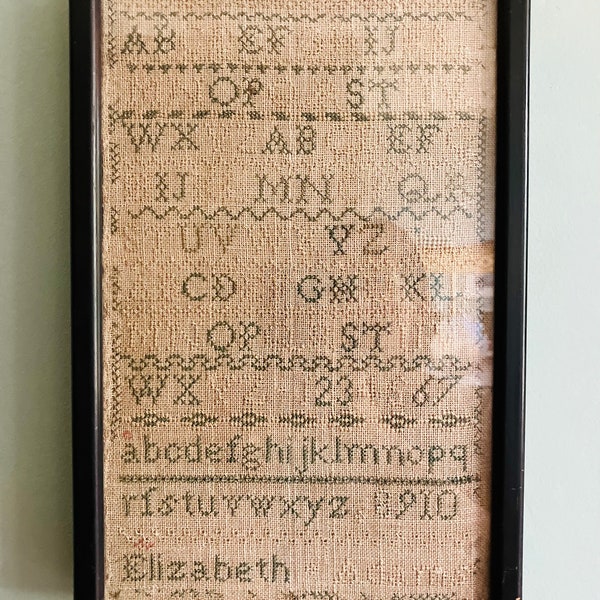 AB EF IJ
OP ST
WX AB EF
IJ MN QR
UV YZ
CD GH KL
OP ST
WX 23 67
abcdefghijklmnopq
rfstuvwxyz 8910
Elizabeth